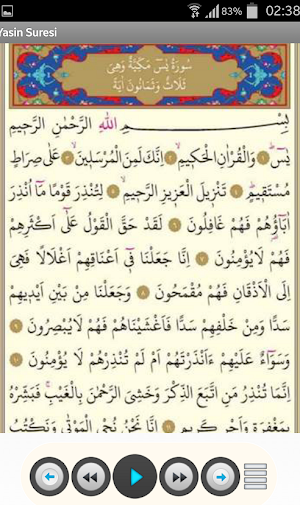 83% 02:38
Yasin Suresi
سُورَةُ يٰسٓ مَكِّيَّةٌ وَهِيَ
ثَلَاثٌ وَثَمَانُونَ اٰيَةً
بِسْمِ اللّٰهِ الرَّحْمٰنِ الرَّحِيمِ
يٰسٓ ﴿١﴾ وَالْقُرْاٰنِ الْحَكِيمِ ﴿٢﴾ اِنَّكَ لَمِنَ الْمُرْسَلِينَ ﴿٣﴾ عَلٰى صِرَاطٍ
مُسْتَقِيمٍ ﴿٤﴾ تَنْزِيلَ الْعَزِيزِ الرَّحِيمِ ﴿٥﴾ لِتُنْذِرَ قَوْمًا مَٓا اُنْذِرَ
اٰبَٓاؤُ۬هُمْ فَهُمْ غَافِلُونَ ﴿٦﴾ لَقَدْ حَقَّ الْقَوْلُ عَلٰٓى اَكْثَرِهِمْ
فَهُمْ لَا يُؤْمِنُونَ ﴿٧﴾ اِنَّا جَعَلْنَا فٓي اَعْنَاقِهِمْ اَغْلَالًا فَهِيَ
اِلَى الْاَذْقَانِ فَهُمْ مُقْمَحُونَ ﴿٨﴾ وَجَعَلْنَا مِنْ بَيْنِ اَيْدِيهِمْ
سَدًّا وَمِنْ خَلْفِهِمْ سَدًّا فَاَغْشَيْنَاهُمْ فَهُمْ لَا يُبْصِرُونَ ﴿٩﴾
وَسَوَٓاءٌ عَلَيْهِمْ ءَاَنْذَرْتَهُمْ اَمْ لَمْ تُنْذِرْهُمْ لَا يُؤْمِنُونَ ﴿١٠﴾
اِنَّمَا تُنْذِرُ مَنِ اتَّبَعَ الذِّكْرَ وَخَشِيَ الرَّحْمٰنَ بِالْغَيْبِ فَبَشِّرْهُ
بِمَغْفِرَةٍ وَاَجْرٍ كَرِيمٍ ﴿١١﴾ اِنَّا نَحْنُ نُحْيِ الْمَوْتٰى وَنَكْتُبُ